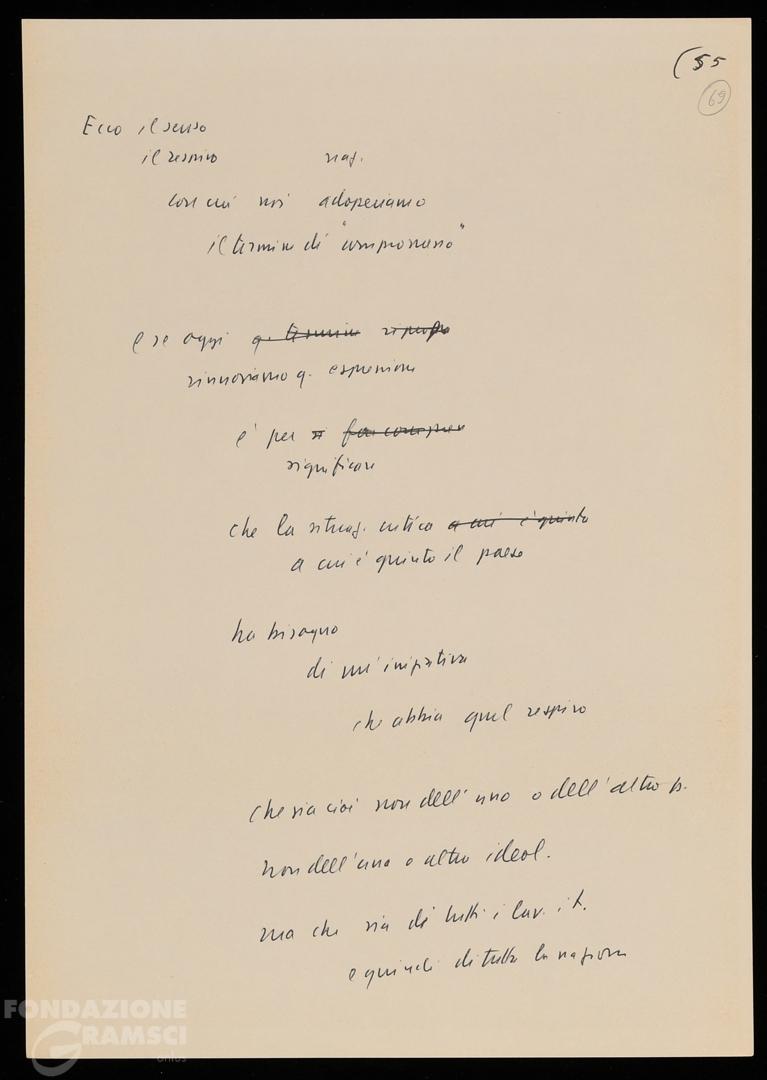 (55
69
Ecco il senso
il respiro naz.
con cui noi adoperiamo
il termine di "compromesso"
e se oggi q. termine si può
rinnoviamo q. espressione
è per si far compren
significare
che la situaz. critica a cui è giunto
a cui è giunto il paese
ha bisogno
di un'iniziativa
che abbia quel respiro
che sia cioè non dell'uno o dell'altro p.
non dell'una o altra ideol.
ma che sia di tutti i lav. it.
e quindi di tutta la nazione
FONDAZIONE
GRAMSCI
onlus